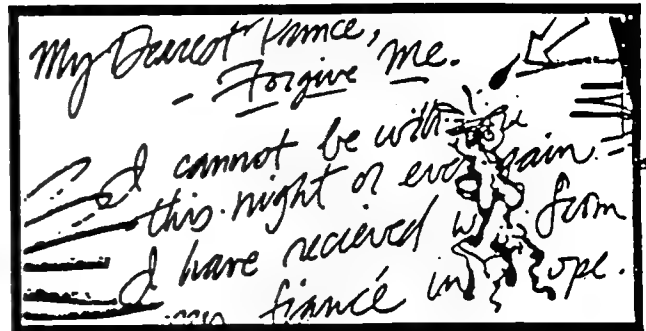 My Dearest Prince,
- Forgive me.
I cannot be with
this night or
I have recieved from
my fiancé in